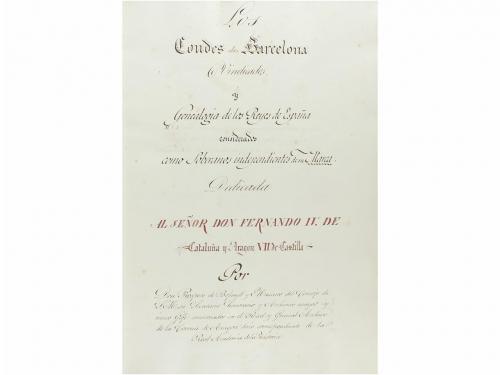 Los
Condes de Barcelona
Vindicados,
y
Genealogia de los Reyes de España
considerados
como Soberanos independientes de su Marca.
Dedicada
AL SEÑOR DON FERNANDO IV. DE
Cataluña y Aragon VII De Castilla
Por
Don Prospero de Bofarull y Mascaró del Consejo de
S. M. su Secretario honorario y Archivero
en el Real y General Archivo
de la Corona de Aragon, socio correspondiente de la
Real Academia de la Historia